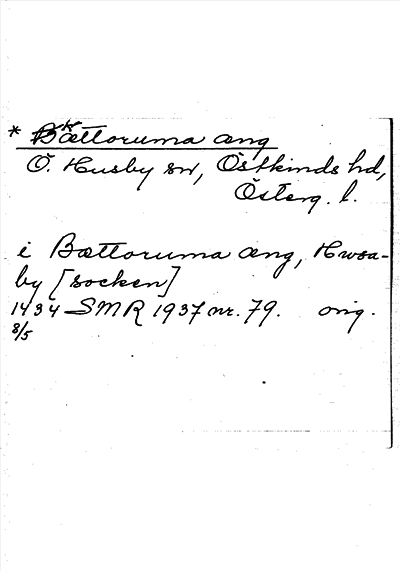 * Bættoruma æng
Ö. Husby sn, Östkinds hd,
Österg. l.
i Bættoruma æng, Hwsa-
by [socken]
1434 SMR 1937 nr. 79. orig.
8/5